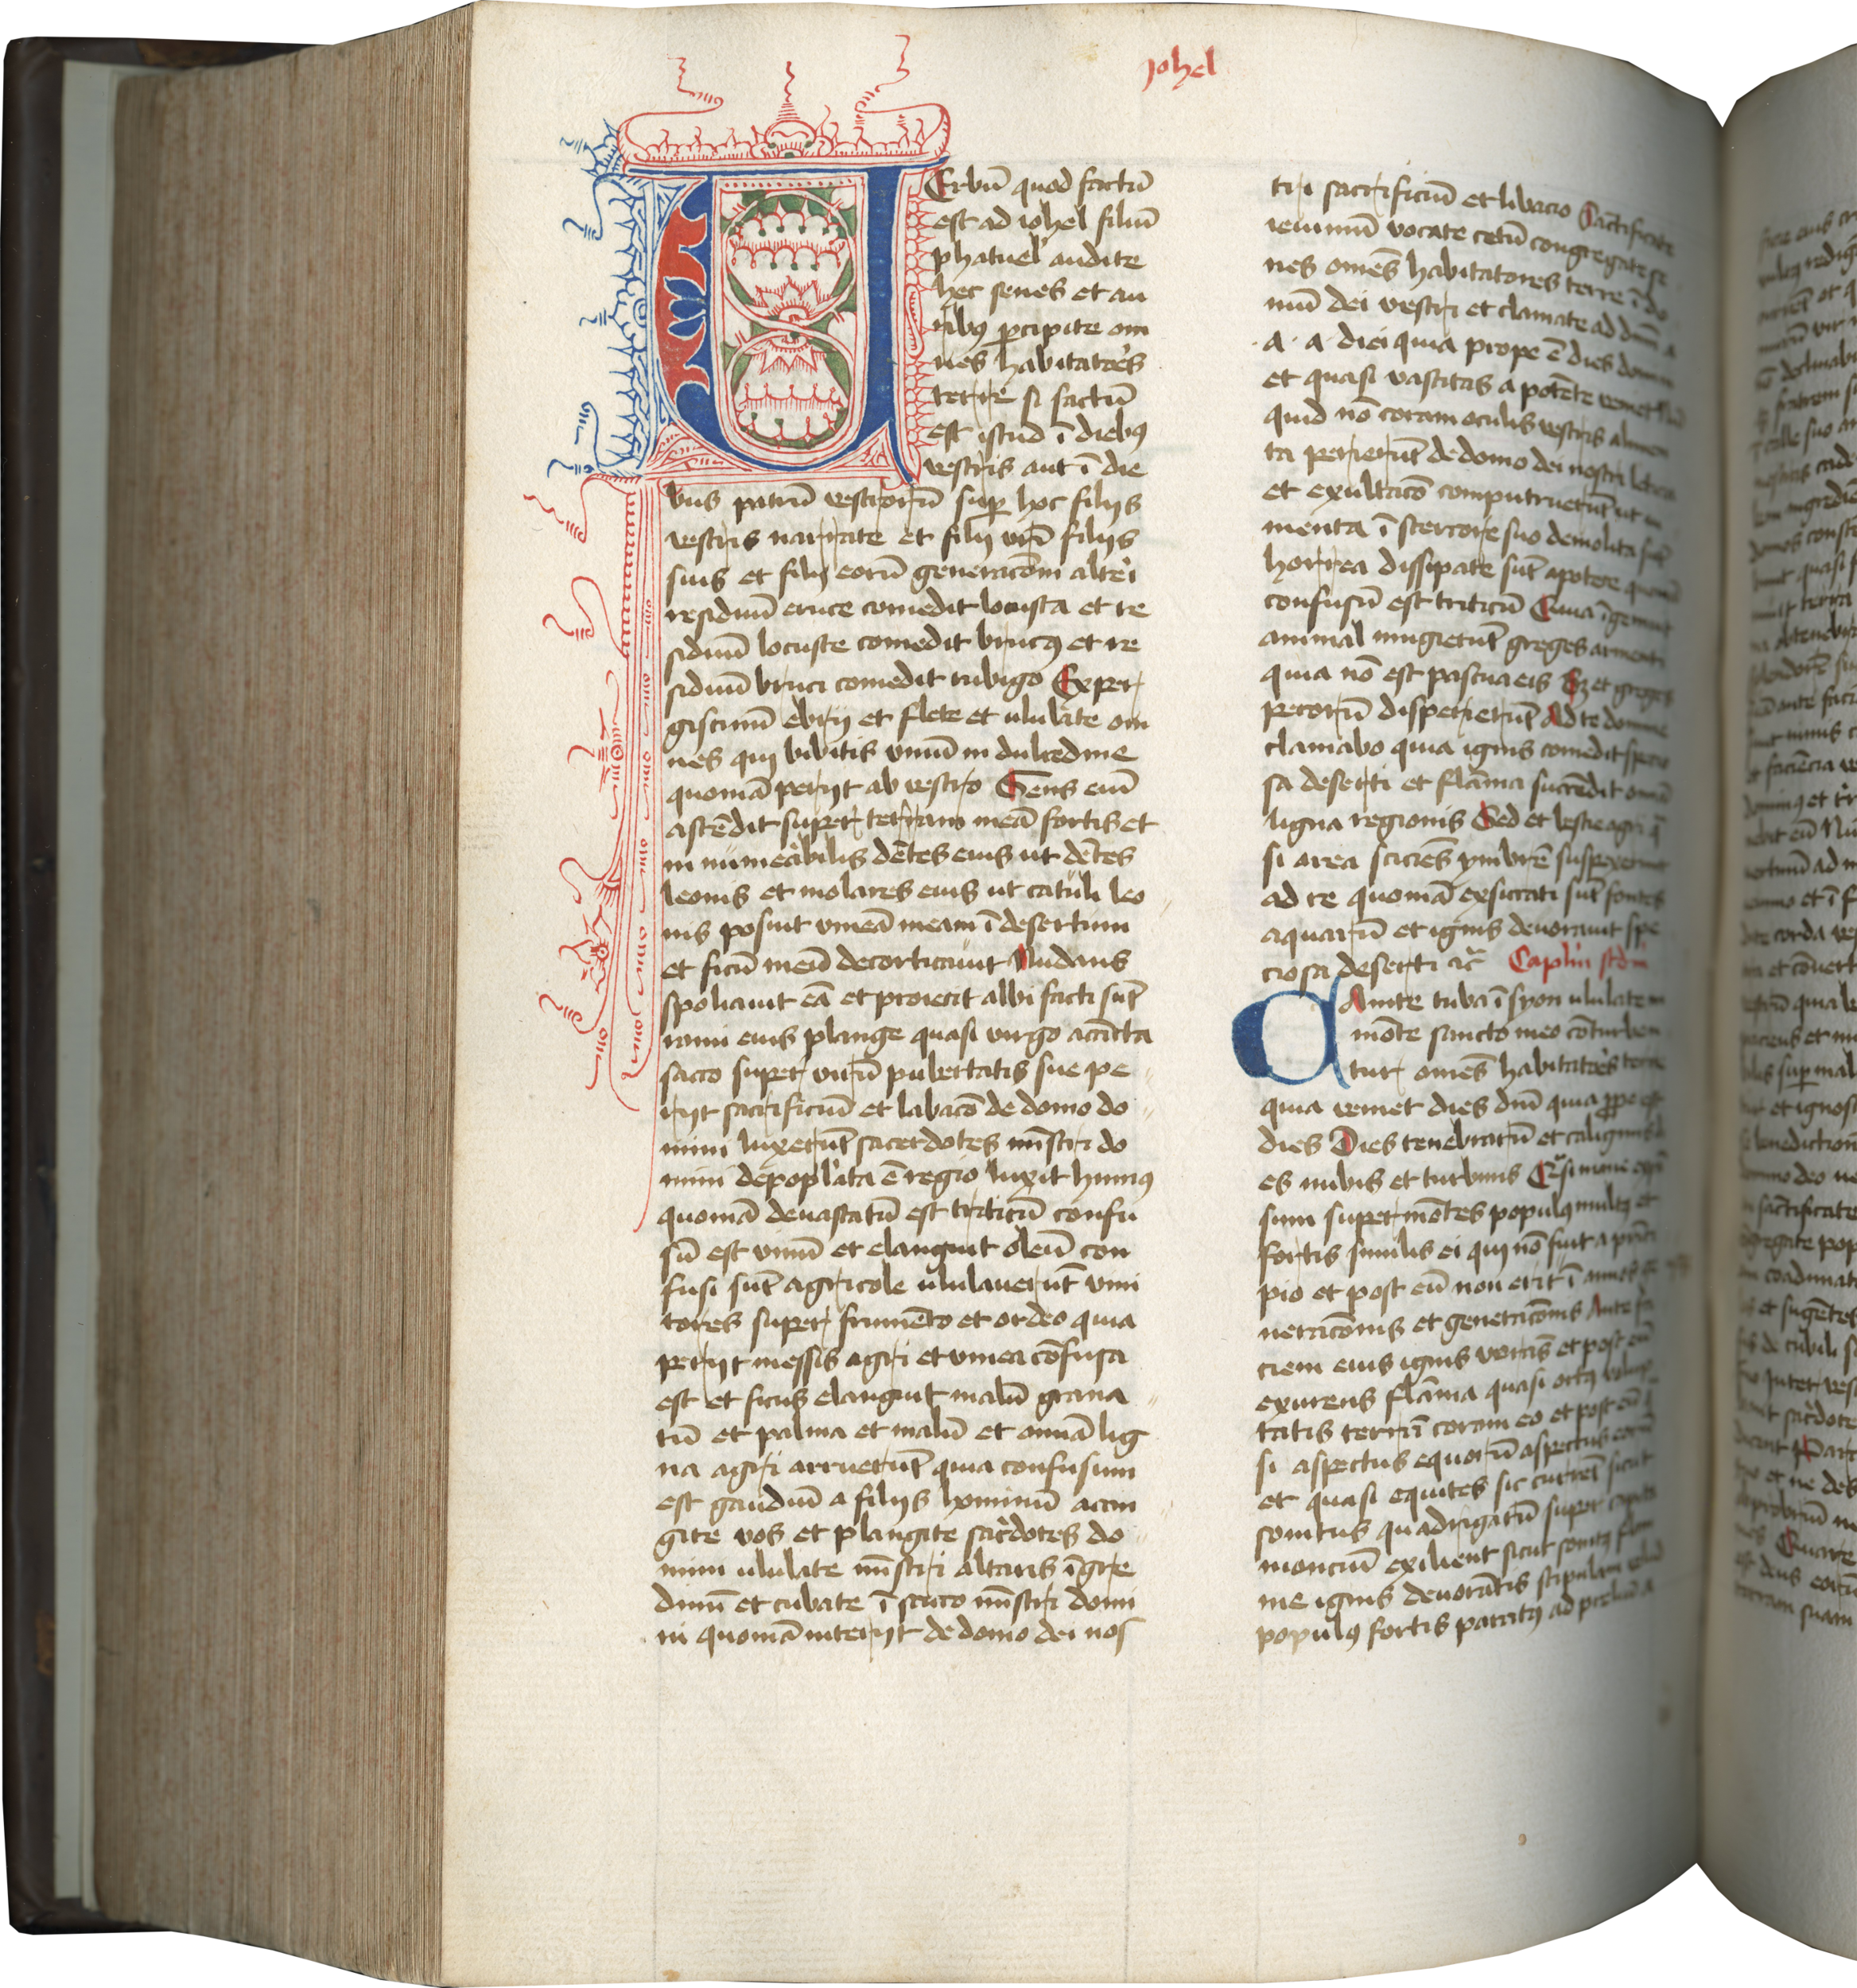 Johel
VErbū quod factū
est ad iohel filiū
phatuel audite
hec senes et au
ribꝯ p̱cipite om
nes habitatores
terre si factū
est istud ī diebꝯ
vestris aut ī die
bus patrū vestrorū suꝑ hoc filijs
vestris narrate et filij vr̄i filijs
suis et filij eorū generacōni alteri
residuū eruce comedit locusta et re
siduū locuste comedit brucꝯ et re
siduū bruci comedit rubigo Exper
giscimī ebrij et flete et ululate om
nes qui bibitis vinū in dulcedine
quoniā perijt ab vestro Gens eni
ascēdit super terram meā fortis et
in numeabilis dētes eius ut dētes
leonis et molares eius ut catuli leo
nis posuit vineā meam ī desertum
et ficū meū decorticauit Nudans
spoliauit eā et proiecit albi facti sūt
rami eius plange quasi virgo accīcta
sacco super virū pubertatis sue pe
rijt sacrificiū et labacō de domo do
mini luxerūt sacerdotes mīstri do
mini depoplata ē regio luxit humꝯ
quoniā deuastatū est triticū confu
sū est vinū et elanguit oleū con
fusi sūt agricole ululauerūt vini
tores super frumēto et ordeo quia
perijt messis agri et vinea cōfusa
est et ficus elanguit malū grana
tū et palma et malū et omīa lig
na agri arruerūt quia confusum
est gaudiū a filijs hominū accin
gite vos et plangite sacrdotes do
mini ululate mīstri altaris īgre
dimī et cubate ī sacco mīstri domi
ni quoniā interijt de domo dei nos
tri sacrificiū et libacio Sāctificate
ieiuniū vocate cetū congregate se
nes omēs habitatores terre ī do
mū dei vestri et clamate ad dūm a
a · a diei quia prope ē dies domini
et quasi vastitas a potēte veniet
quid nō coram oculis vestris alimen
ta perierūt de domo dei nostri leticia
et exultacō computruerūt iu
menta ī stercore suo demolita sūt
horrea dissipate sūt apotece quoniā
confusū est triticū Quia īgemuit
animal mugierūt greges armenti
quia nō est pascua eis Sz et greges
pecorū disperierūt Ad te domine
clamabo quia ignis comedit specio
sa deserti et flāma succēdit omīa
ligna regionis Sed et bestie agri q̄
si area sciciēs ymbrē suspexerunt
ad te quoniā exsiccati sūt fontes
aquarū et ignis deuorauit spe
ciosa deserti ⁊c̄ Caplm scdm
CAnite tuba ī syon ululate in
mōte sancto meo cōturben
tur omēs habitatores terre
quia veniet dies dnī quia ꝓpe est
dies Dies tenebrarū et caliginis di
es nubis et turbinis Qͣsi mane expā
sum super mōtes populꝯ multꝯ et
fortis similis ei qui nō fuit a princi
pio et post eū non erit ī annos ge
neracōnis et generacōnis Ante fa
ciem eius ignis vorās et post eū
exurens flāma quasi ortꝯ volup
tatis terrā coram eo et post eū
si aspectus equorū aspectus eorū
et quasi equites sic currēt sicut
sonitus quadrigarū super capita
monciū exilient sicut sonitꝯ flam
me ignis deuorātis stipulam velud
populꝯ fortis paratꝯ ad preliū a